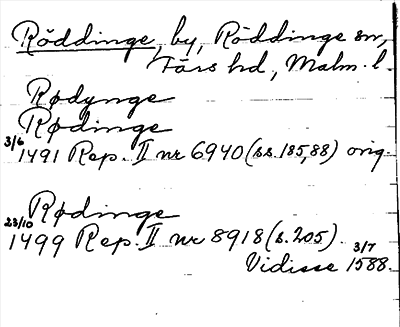 Röddinge, by, Röddinge sn,
Färs hd, Malm. l.
Rødynge
Rødinge
3/6 1491 Rep. II nr 6940 (ss. 185, 88) orig.
Rødinge
23/10 1499 Rep. II nr 8918 (s. 205).
Vidisse 3/7 1588.